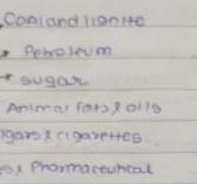 Coal and lignite
Petroleum
sugar
Animal fats & oils
igars & cigarettes
& Pharmaceutical